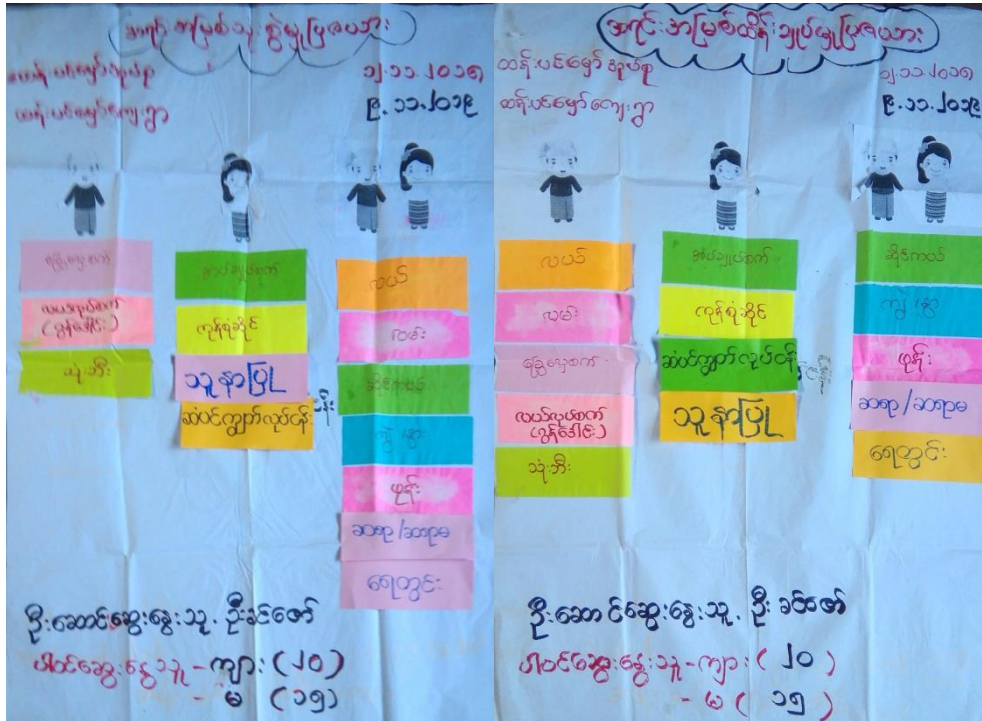 အရင်းအမြစ်သုံးစွဲမှုပြဇယား
ထန်းပင်မှော်အုပ်စု ၁၂.၁၁.၂၀၁၅
ထန်းပင်မှော်ကျေးရွာ ၉.၁၁.၂၀၁၉
ခြွေလှေ့စက်
လယ်လုပ်စက်
(ထွန်ဒေါင်း)
သုံးဘီး
အပ်ချုပ်စက်
ကုန်စုံဆိုင်
သူနာပြု
ဆံပင်ညှပ်လုပ်ငန်း
လယ်
လမ်း
ဆိုင်ကယ်
ကျွဲ/နွား
ဖုန်း
ဆရာ/ဆရာမ
ရေတွင်း
ဦးဆောင်ဆွေးနွေးသူ . ဦးခင်ဇော်
ပါဝင်ဆွေးနွေးသူ - ကျား (၂၀)
- မ (၁၅)
အရင်းအမြစ်ထိန်းချုပ်မှုပြဇယား
ထန်းပင်မှော်အုပ်စု ၁၂.၁၁.၂၀၁၅
ထန်းပင်မှော်ကျေးရွာ ၉.၁၁.၂၀၁၉
လယ်
လမ်း
ခြွေလှေ့စက်
လယ်လုပ်စက်
(ထွန်ဒေါင်း)
သုံးဘီး
အပ်ချုပ်စက်
ကုန်စုံဆိုင်
ဆံပင်ညှပ်လုပ်ငန်း
သူနာပြု
ဆိုင်ကယ်
ကျွဲ/နွား
ဖုန်း
ဆရာ/ဆရာမ
ရေတွင်း
ဦးဆောင်ဆွေးနွေးသူ . ဦးခင်ဇော်
ပါဝင်ဆွေးနွေးသူ - ကျား (၂၀)
- မ (၁၅)